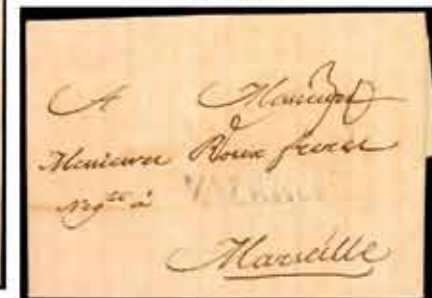 A Monsieur
Monsieur Roux freres
Negt à
Marseille